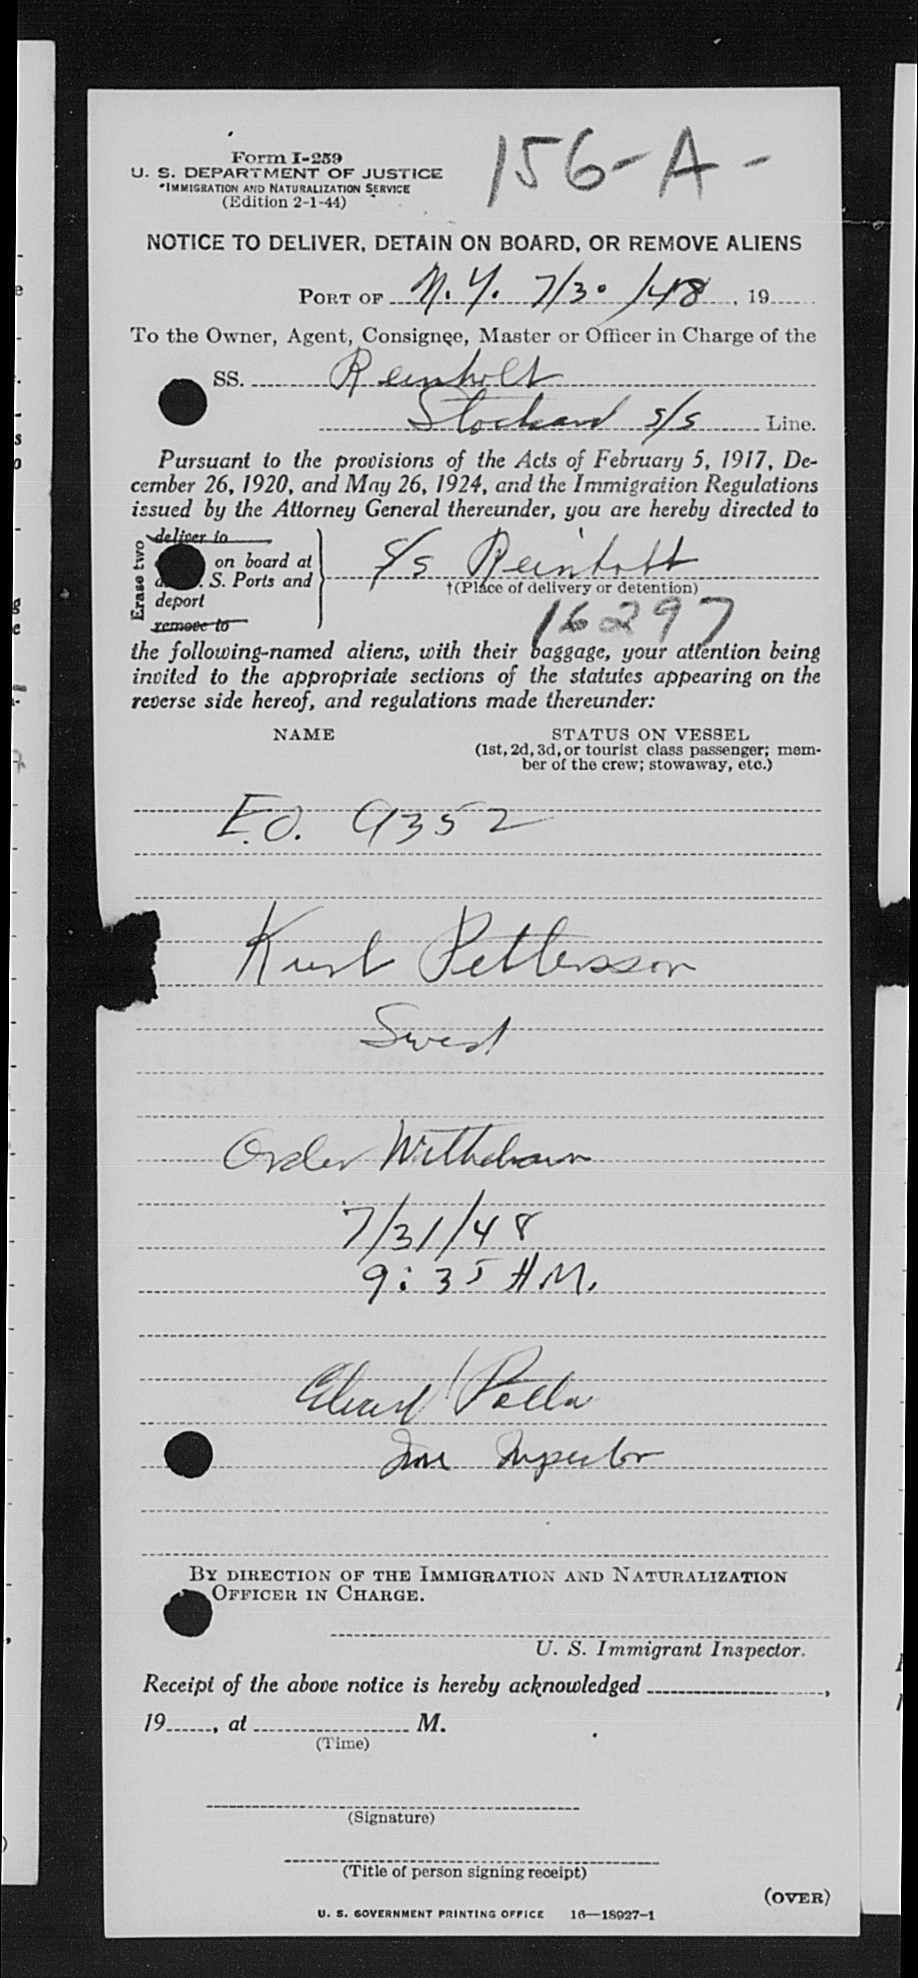 Form I-259
156-A-
U. S. DEPARTMENT OF JUSTICE
IMMIGRATION AND NATURALIZATION SERVICE
(Edition 2-1-44)
NOTICE TO DELIVER, DETAIN ON BOARD, OR REMOVE ALIENS
PORT OF N.Y. 7/30/48, 19
To the Owner, Agent, Consignee, Master or Officer in Charge of the
SS. Reinholt
Stockard s/s Line.
Pursuant to the provisions of the Acts of February 5, 1917, De-
cember 26, 1920, and May 26, 1924, and the Immigration Regulations
issued by the Attorney General thereunder, you are hereby directed to
Erase two
deliver to
on board at
S. Ports and
deport
remove to
S/S Reinholt
†(Place of delivery or detention)
16297
the following-named aliens, with their baggage, your attention being
invited to the appropriate sections of the statutes appearing on the
reverse side hereof, and regulations made thereunder:
NAME
STATUS ON VESSEL
(1st, 2d, 3d, or tourist class passenger; mem-
ber of the crew; stowaway, etc.)
E.O. 9352
Kurt Pettersson
Swed
Order Withdrawn
7/31/48
9:35 AM.
Imm Inspector
BY DIRECTION OF THE IMMIGRATION AND NATURALIZATION
OFFICER IN CHARGE.
U. S. Immigrant Inspector.
Receipt of the above notice is hereby acknowledged ,
19, at M.
(Time)
(Signature)
(Title of person signing receipt)
(OVER)
U. S. GOVERNMENT PRINTING OFFICE 16—18927-1